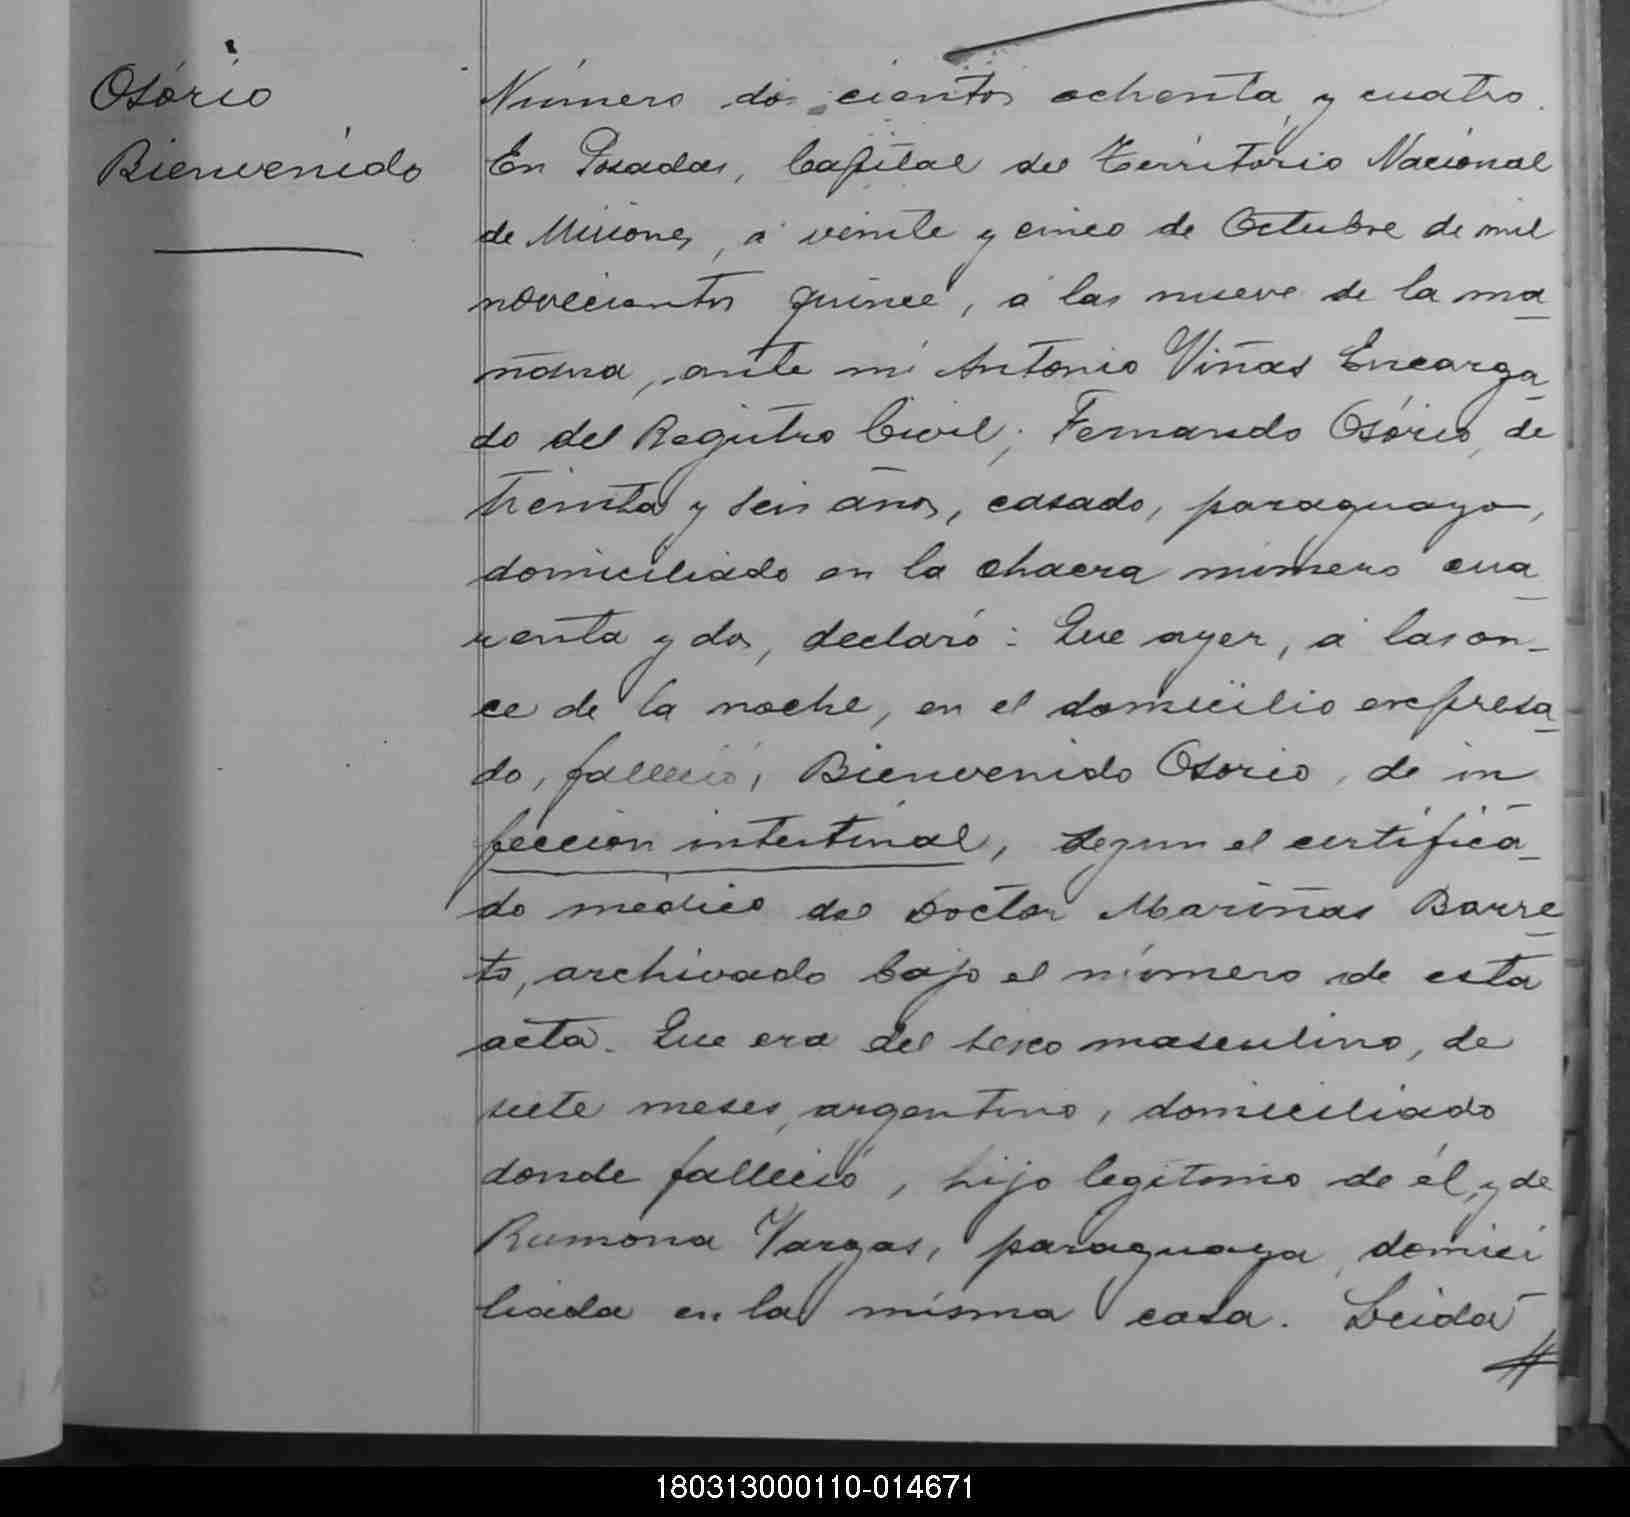 Osório
Bienvenido
Número dos cientos ochenta y cuatro.
En Posadas, Capital del Território Nacional
de Misiones, á veinte y cinco de Octubre de mil
novecientos quince, á las nueve de la ma
ñana, ante mi Antonio Viñas Encarga
do del Registro Civil; Fernando Osório, de
treinta y seis años, casado, paraguayo,
domiciliado en la chacra número cua
renta y dos, declaró: Que ayer, á las on-
ce de la noche, en el domicilio expresa
do, falleció, Bienvenido Osorio, de in
feccion intestinal, segun el certifica
do médico del Doctor Mariñas Barre
to, archivado bajo el número de esta
acta. Que era del sexo masculino, de
siete meses, argentino, domiciliado
donde falleció, hijo legitimo de él, y de
Ramona Vargas, paraguaya, domici
liada en la misma casa. Leida
180313000110-014671